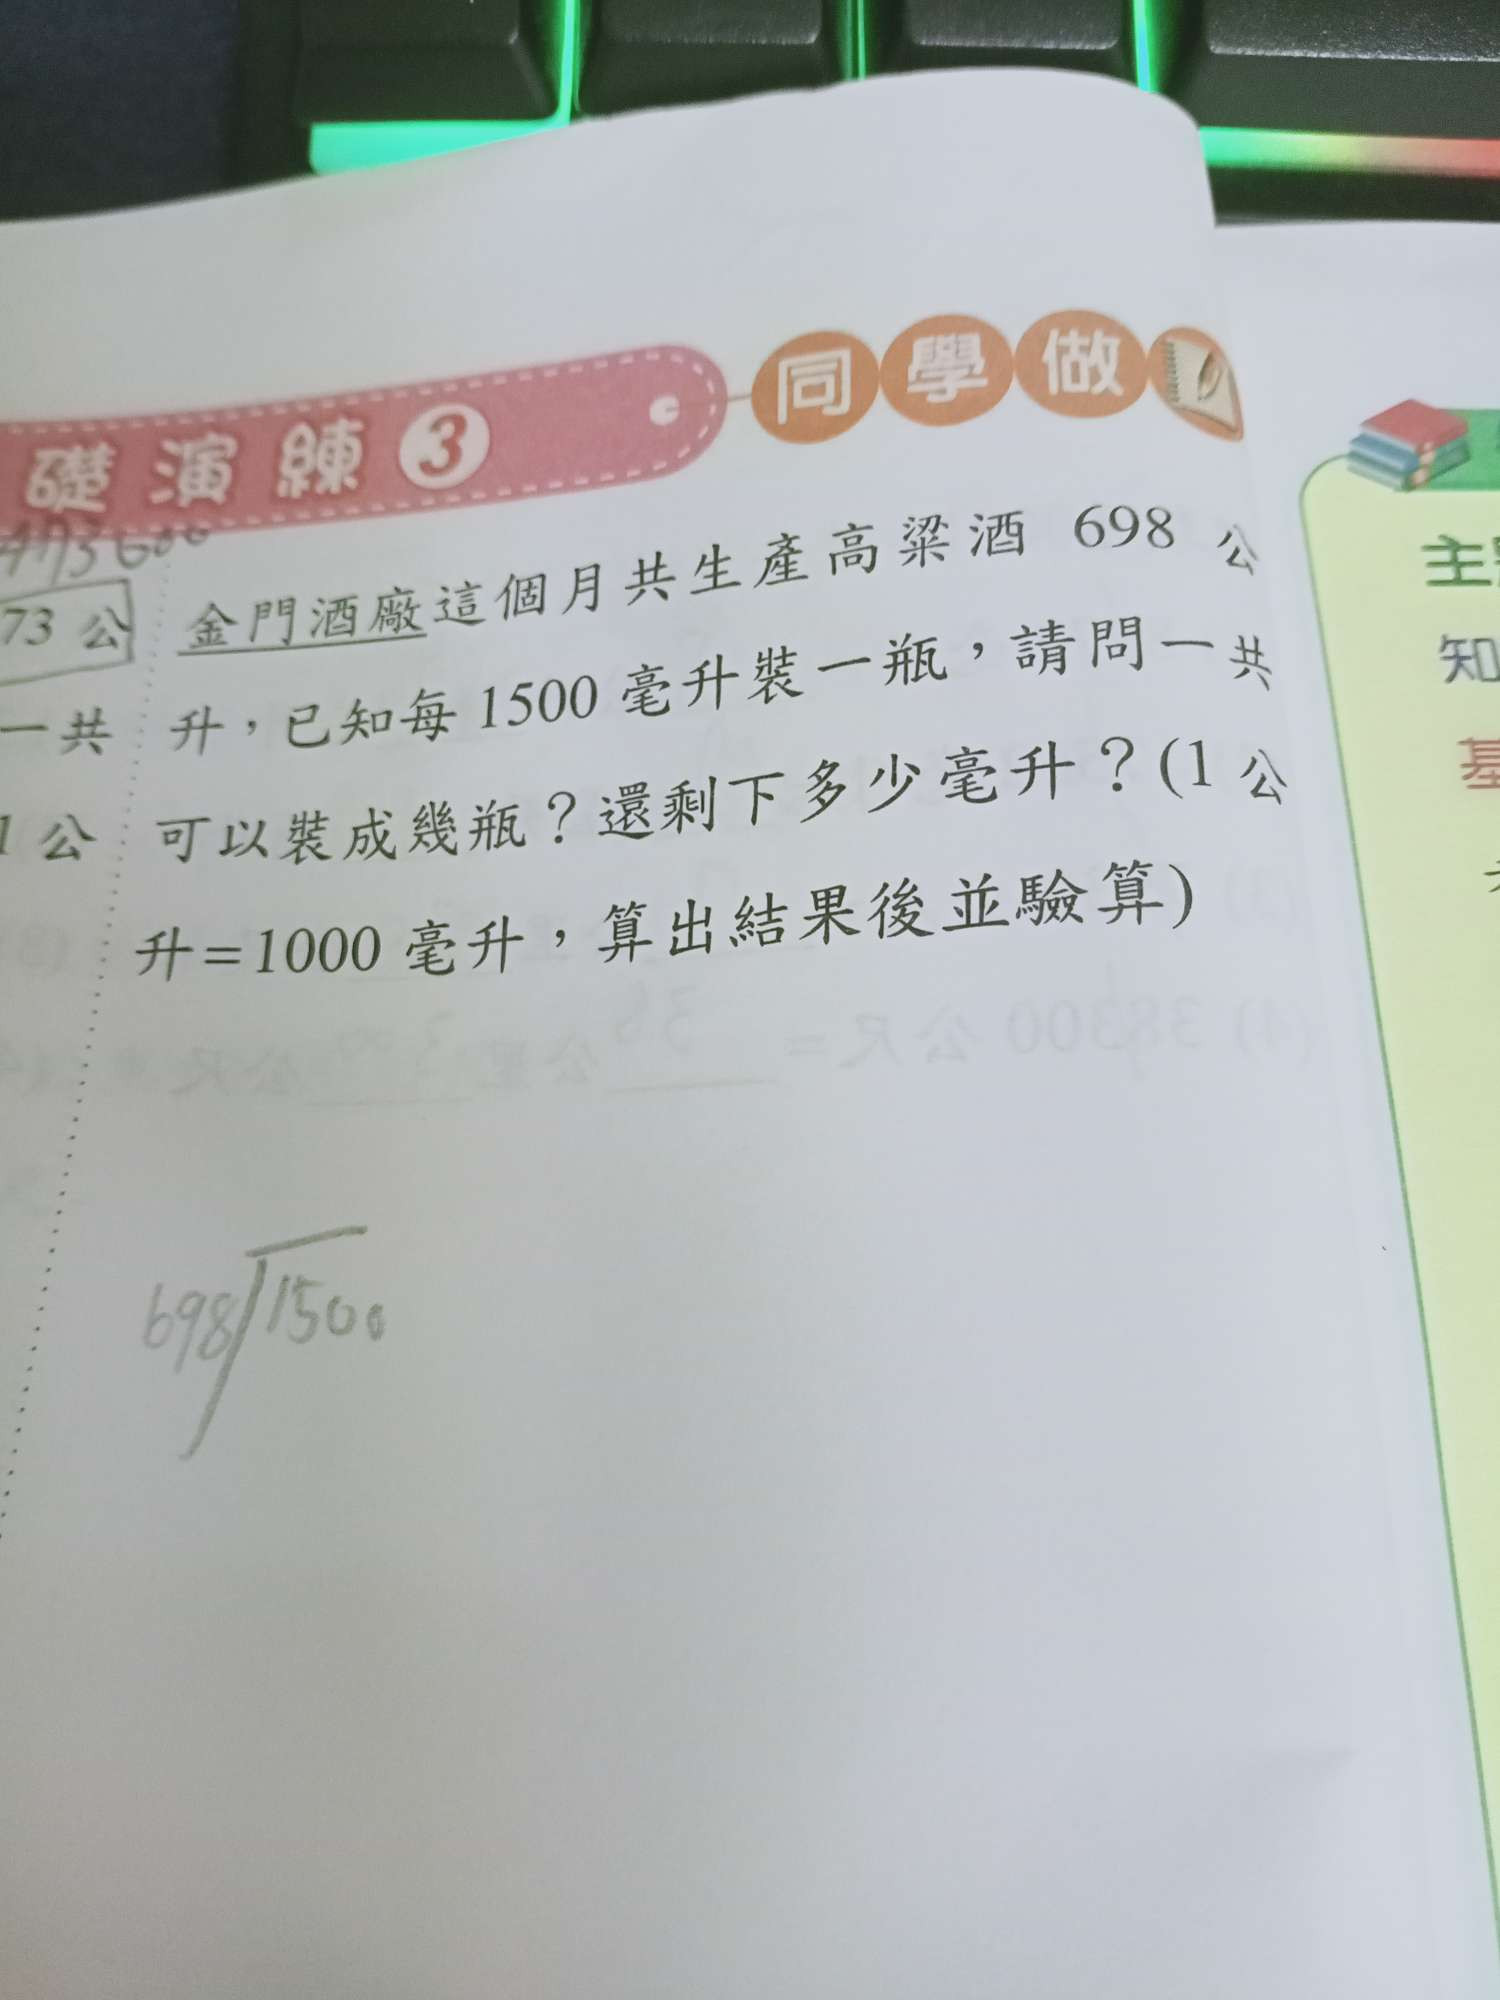 礎演練3 同學做
473600
73公
金門酒廠這個月共生產高粱酒 698 公
升，已知每 1500 毫升裝一瓶，請問一共
可以裝成幾瓶？還剩下多少毫升？(1 公
升=1000 毫升，算出結果後並驗算)
一共
1 公
698 1500
知
基